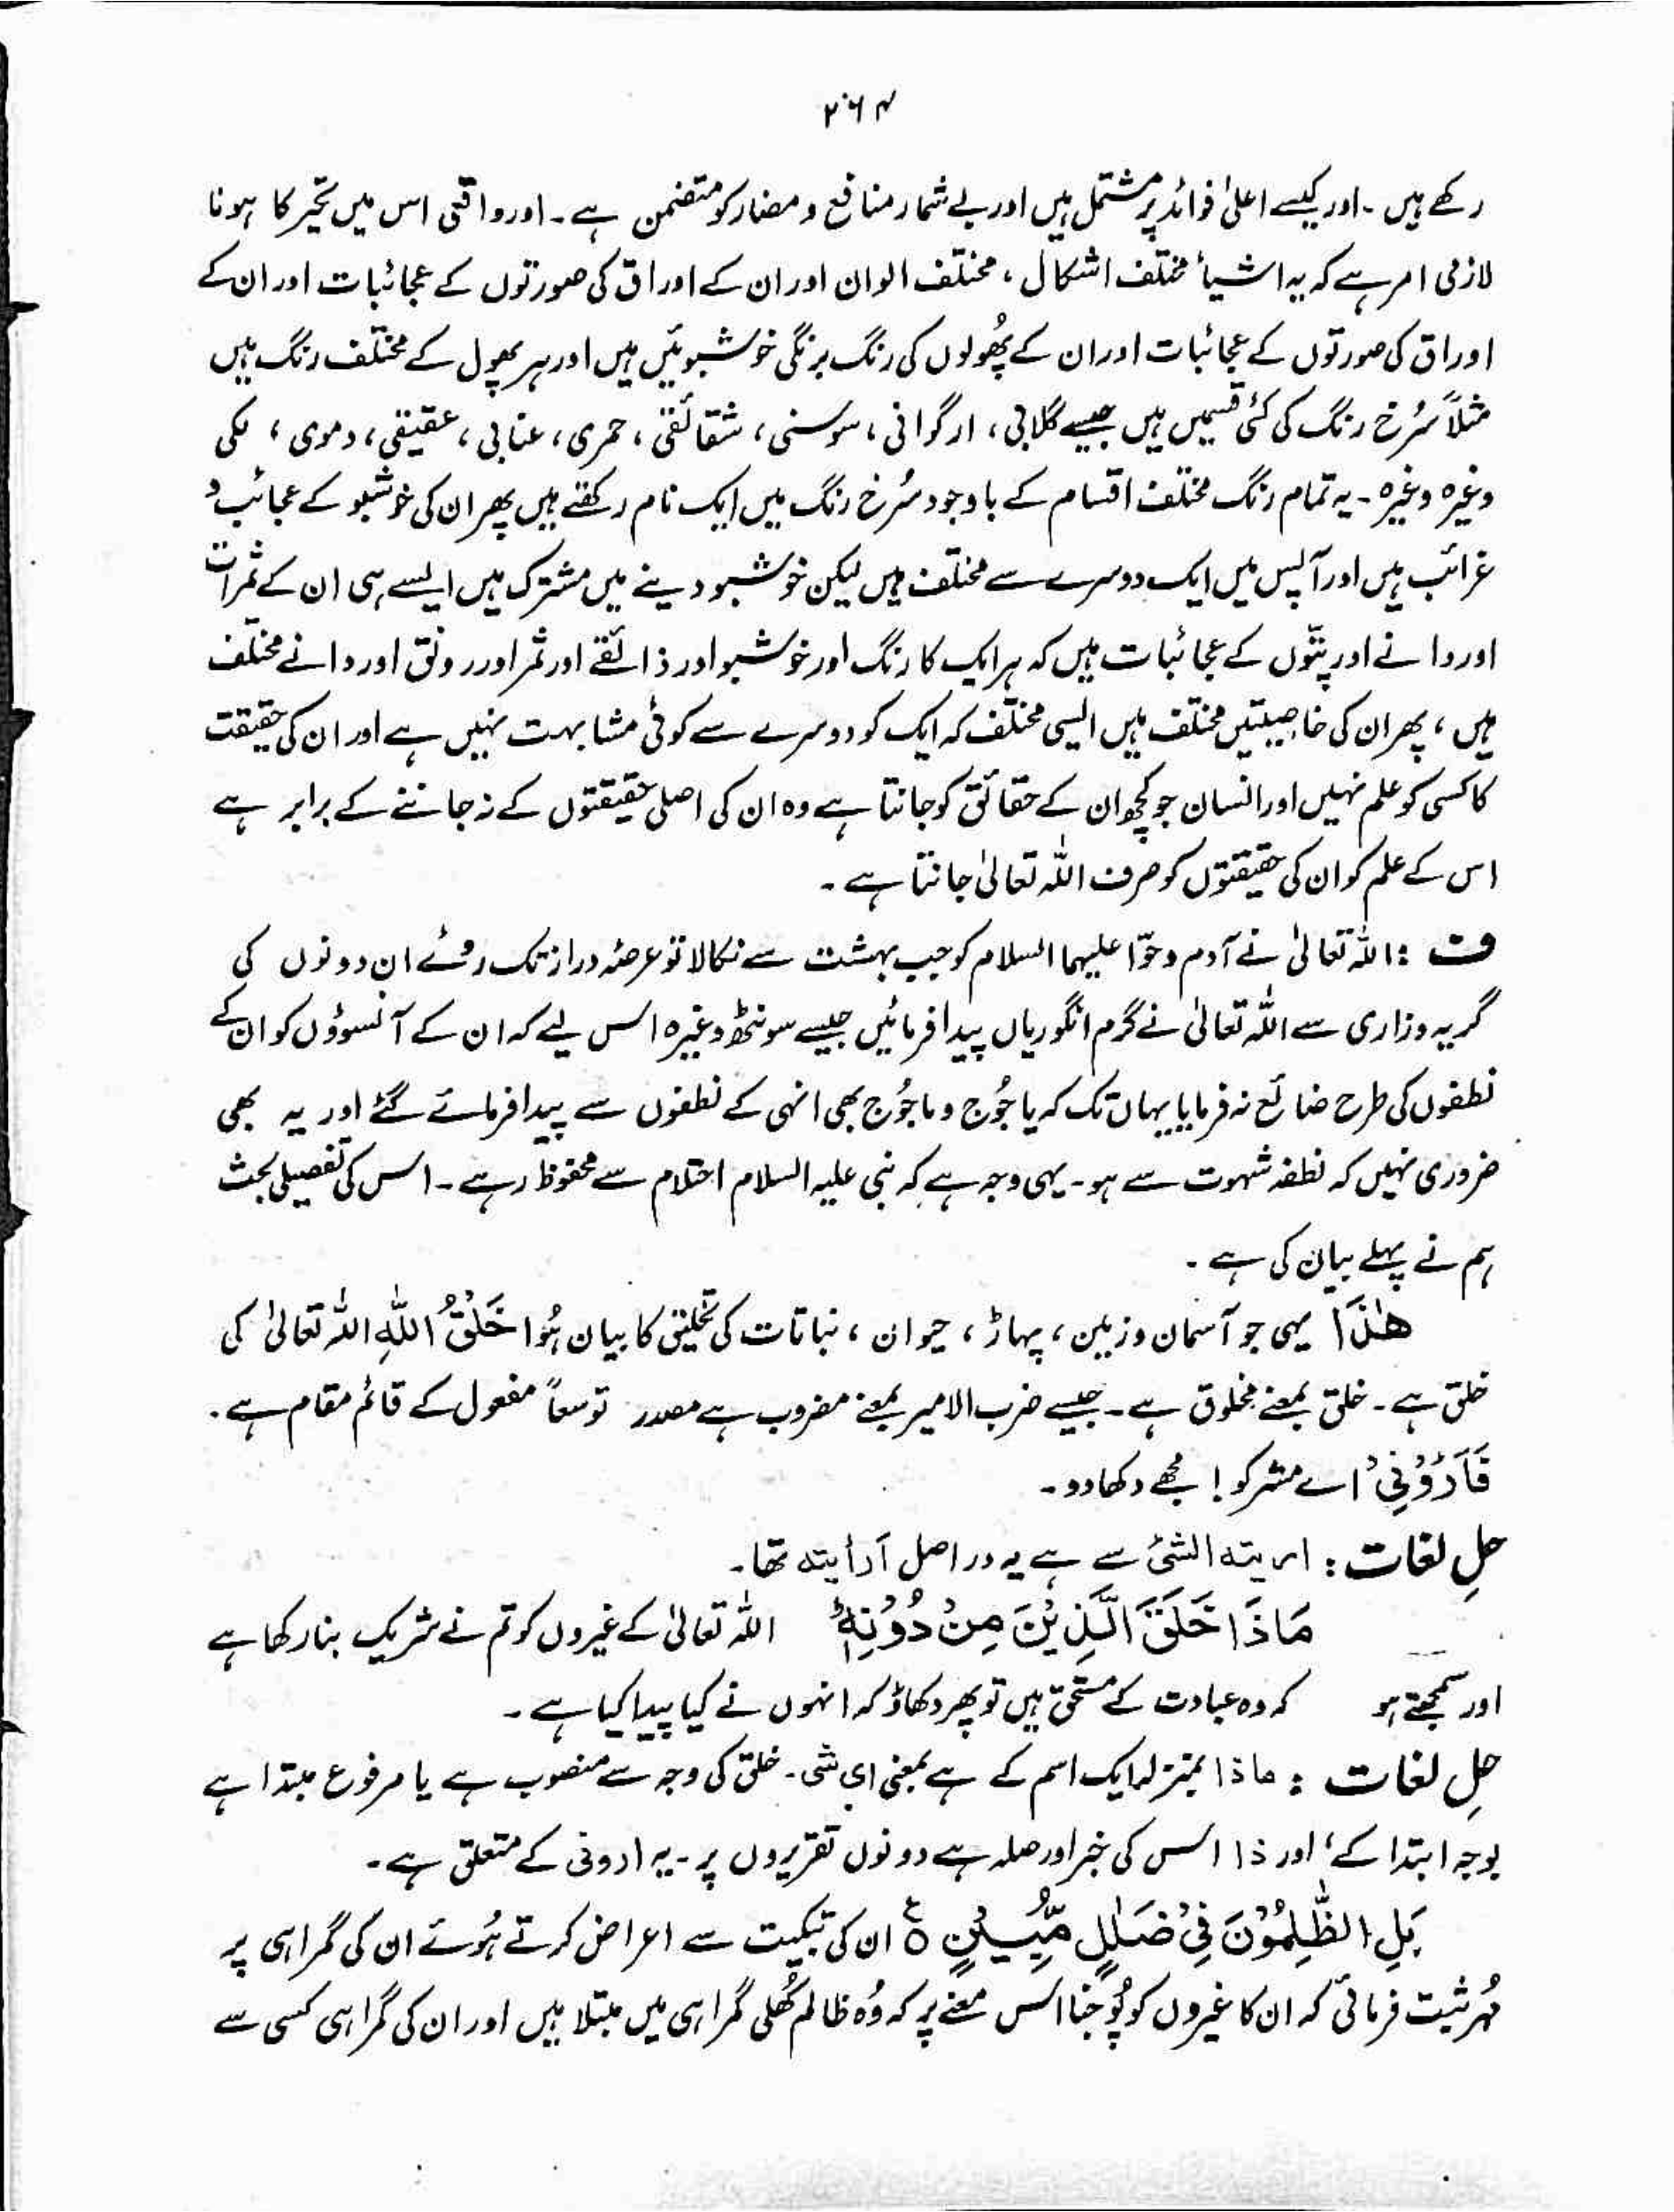 ۲۶۴
رکھے ہیں ۔ اور کیسے اعلیٰ فوائد پر مشتمل ہیں اور بے شمار منافع و مضار کو متضمن ہے ۔ اور واقعی اس میں تحیر کا ہونا
لازمی امر ہے کہ یہ اشیأ مختلف اشکال ، مختلف الوان اور ان کے اوراق کی صورتوں کے عجائبات اور ان کے
اوراق کی صورتوں کے عجائبات اور ان کے پھُولوں کی رنگ برنگی خوشبوئیں ہیں اور ہر پھول کے مختلف رنگ ہیں
مثلاً سُرخ رنگ کی کئی قسمیں ہیں جیسے گلابی ، ارگوانی ، سوسنی ، شقائقی ، حمری ، عنابی ، عقیقی ، دموی ، لکی
وغیرہ وغیرہ ۔ یہ تمام رنگ مختلف اقسام کے باوجود سُرخ رنگ میں ایک نام رکھتے ہیں پھر ان کی خوشبو کے عجائب و
غرائب ہیں اور آپس میں ایک دوسرے سے مختلف ہیں لیکن خوشبو دینے میں مشترک ہیں ایسے ہی ان کے ثمرات
اور دانے اور پتّوں کے عجائبات ہیں کہ ہر ایک کا رنگ اور خوشبو اور ذائقے اور ثمر اور رونق اور دانے مختلف
ہیں ، پھر ان کی خاصیتیں مختلف ہیں ایسی مختلف کہ ایک کو دوسرے سے کوئی مشابہت نہیں ہے اور ان کی حقیقت
کا کسی کو علم نہیں اور انسان جو کچھ ان کے حقائق کو جانتا ہے وہ ان کی اصلی حقیقتوں کے نہ جاننے کے برابر ہے
اس کے علم کو ان کی حقیقتوں کو صرف اللہ تعالیٰ جانتا ہے ۔
ف : اللہ تعالیٰ نے آدم و حوّا علیہما السلام کو جب بہشت سے نکالا تو عرصۂ دراز تک روئے ان دونوں کی
گریہ وزاری سے اللہ تعالیٰ نے گرم انگوریاں پیدا فرمائیں جیسے سونٹھ وغیرہ اس لیے کہ ان کے آنسوؤں کو ان کے
نطفوں کی طرح ضائع نہ فرمایا یہاں تک کہ یاجُوج و ماجُوج بھی انہی کے نطفوں سے پیدا فرمائے گئے اور یہ بھی
ضروری نہیں کہ نطفہ شہوت سے ہو ۔ یہی وجہ ہے کہ نبی علیہ السلام احتلام سے محفوظ رہے ۔ اس کی تفصیلی بحث
ہم نے پہلے بیان کی ہے ۔
هٰذَا یہی جو آسمان و زمین ، پہاڑ ، حیوان ، نباتات کی تخلیق کا بیان ہُوا خَلْقُ اللّٰهِ اللہ تعالیٰ کی
خلق ہے ۔ خلق بمعنے مخلوق ہے ۔ جیسے ضرب الامیر بمعنے مضروب ہے مصدر توسعاً مفعول کے قائم مقام ہے ۔
فَاَرُوْنِيْ اے مشرکو ! مجھے دکھا دو ۔
حلِ لغات : اریتہ الشئ سے ہے یہ دراصل أرأیتہ تھا ۔
مَاذَا خَلَقَ الَّذِيْنَ مِنْ دُوْنِهٖ ؕ اللہ تعالیٰ کے غیروں کو تم نے شریک بنا رکھا ہے
اور سمجھتے ہو کہ وہ عبادت کے مستحق ہیں تو پھر دکھاؤ کہ انہوں نے کیا پیدا کیا ہے ۔
حلِ لغات : ماذا بمنزلہ ایک اسم کے ہے بمعنی ای شی ۔ خلق کی وجہ سے منصوب ہے یا مرفوع مبتدا ہے
بوجہ ابتدا کے ، اور ذا اس کی خبر اور صلہ ہے دونوں تقریروں پر ۔ یہ ارونی کے متعلق ہے ۔
بَلِ الظّٰلِمُوْنَ فِيْ ضَلٰلٍ مُّبِيْنٍ ۝ ع ان کی تبکیت سے اعراض کرتے ہُوئے ان کی گمراہی پر
مُہر ثبت فرمائی کہ ان کا غیروں کو پُوجنا اس معنے پر کہ وُہ ظالم کھُلی گمراہی میں مبتلا ہیں اور ان کی گمراہی کسی سے